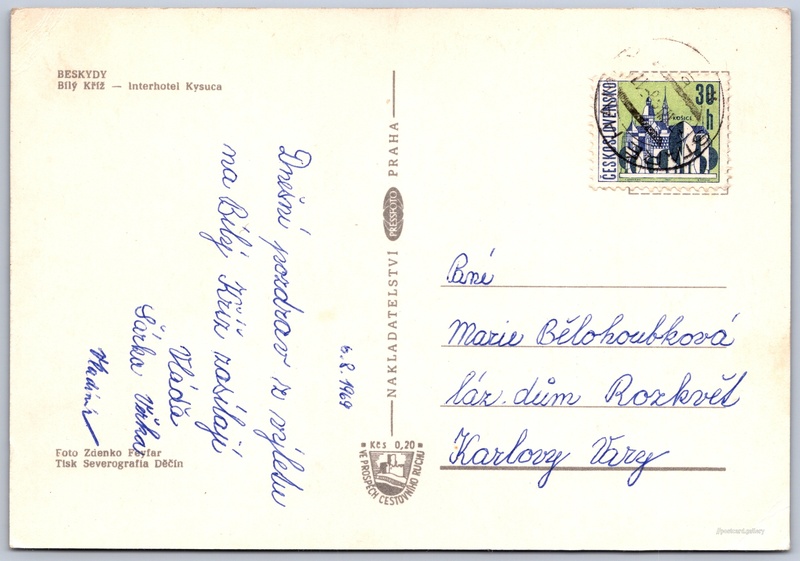 BESKYDY
Bílý Kříž — Interhotel Kysuca
Dnešní pozdrav z výletu
na Bílý Kříž zasílají
Vláďa
Šárka Věrka
Vladimír
5. 8. 1969
Foto Zdenko Feyfar
Tisk Severografia Děčín
NAKLADATELSTVÍ PRESSFOTO PRAHA
Kčs 0,20
VE PROSPĚCH CESTOVNÍHO RUCHU
ČESKOSLOVENSKO
30 h
KOŠICE
Paní
Marie Bělohoubková
láz. dům Rozkvět
Karlovy Vary